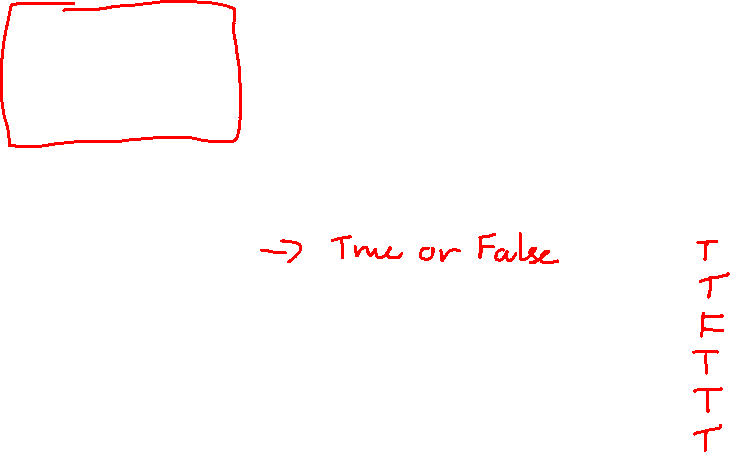 → True or False T
T
F
T
T
T